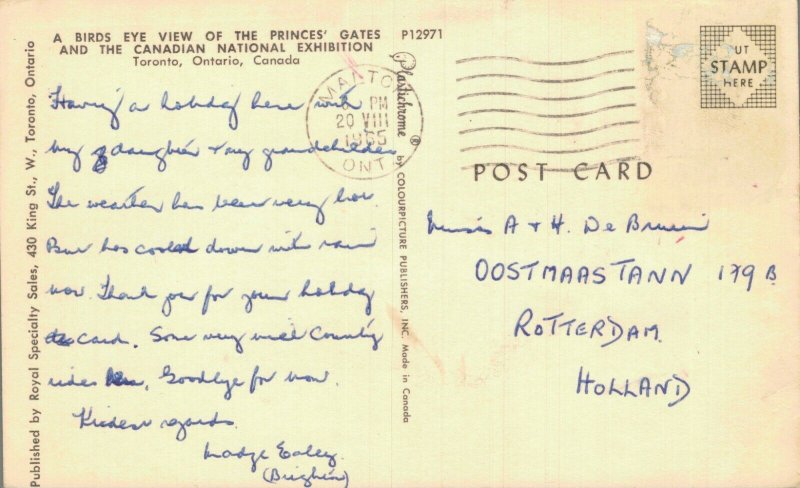 A BIRDS EYE VIEW OF THE PRINCES' GATES
AND THE CANADIAN NATIONAL EXHIBITION
Toronto, Ontario, Canada
P12971
Published by Royal Specialty Sales, 430 King St., W., Toronto, Ontario
Having a holiday here with
my daughter & my grandchildren
The weather has been very hot.
But has cooled down with rain
now. Thank you for your holiday
card. Some very nice Country
rides. Goodbye for now.
Kindest regards.
Madge
(Brighton)
Plastichrome ® by COLOURPICTURE PUBLISHERS, INC. Made in Canada
PM
20 VIII
1965
ONT
UT
STAMP
HERE
POST CARD
A & H. De Bruin
OOSTMAASTANN 179 B
ROTTERDAM.
HOLLAND